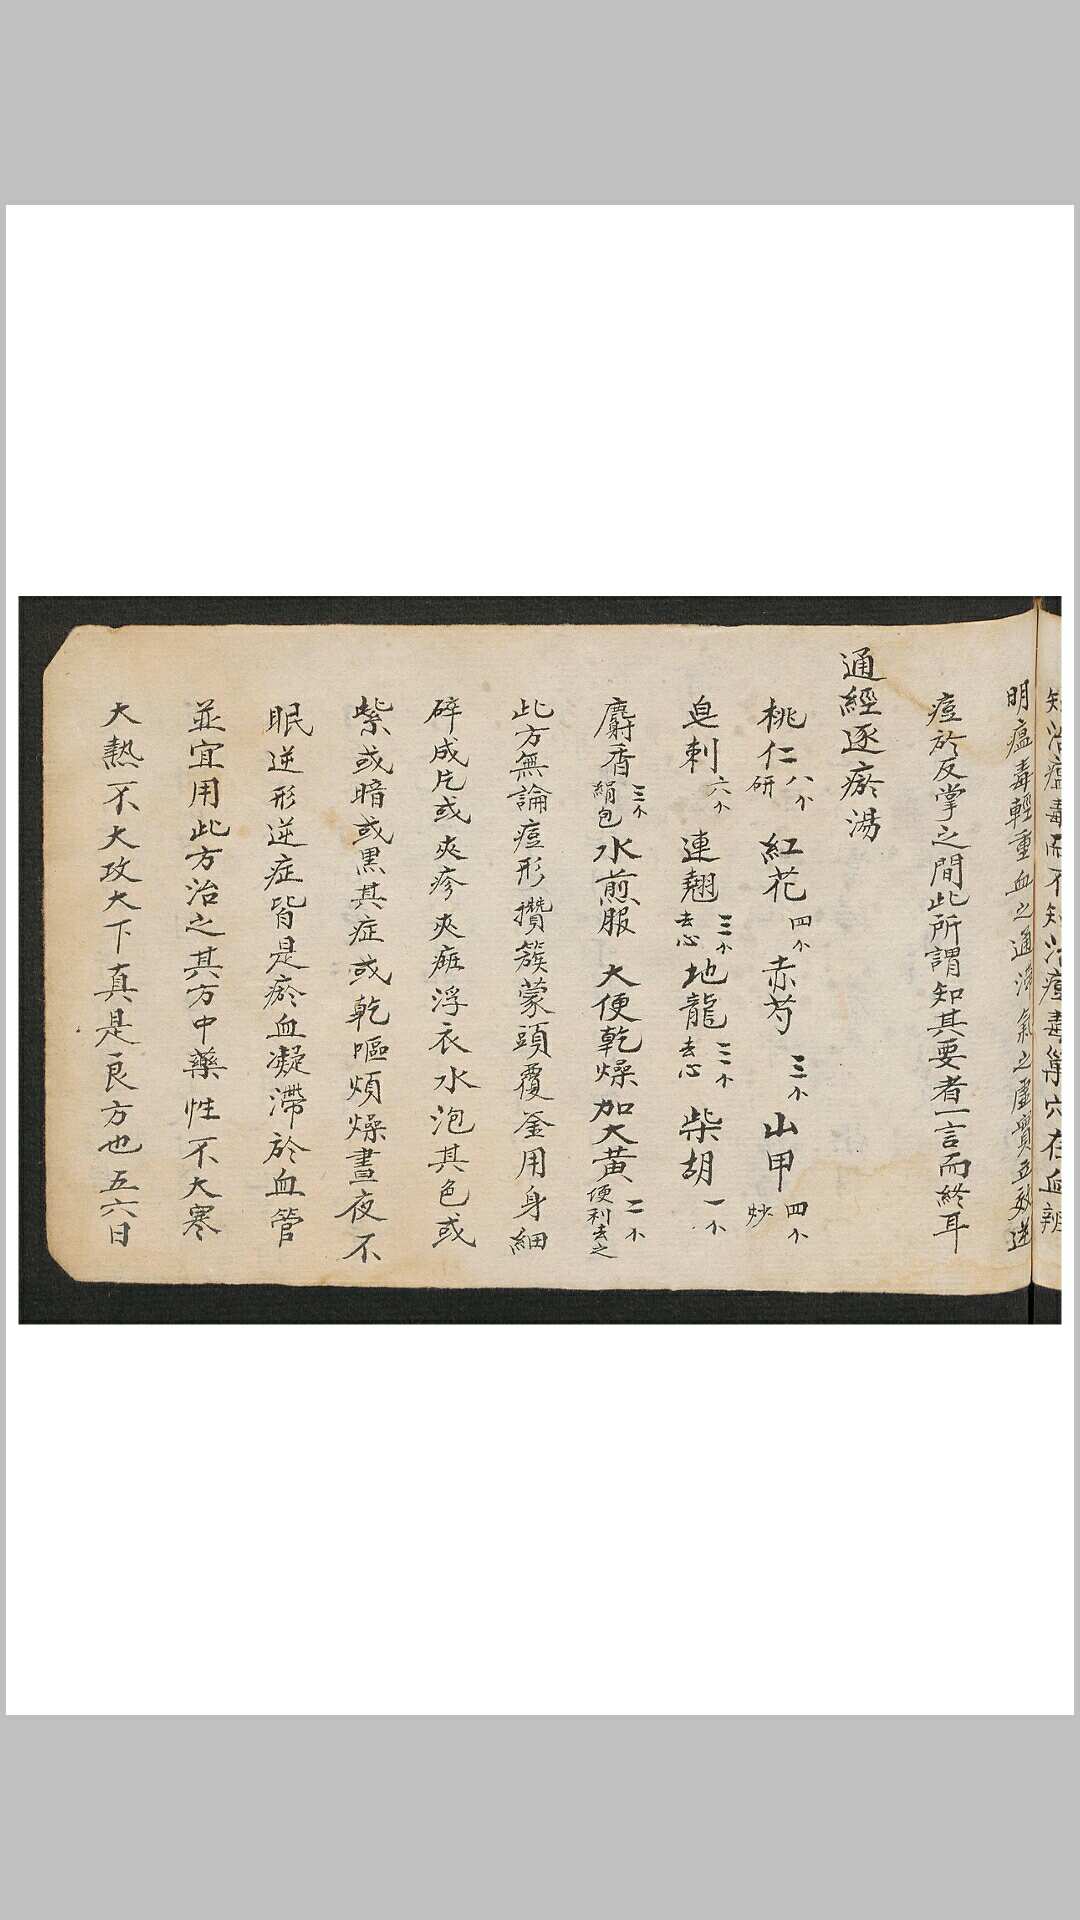 知治瘟毒而不知治痘毒巢穴在血辨
明瘟毒輕重血之通滯氣之虛實立救逆
痘於反掌之間此所謂知其要者一言而終耳
通經逐瘀湯
桃仁八个研 紅花四个 赤芍三个 山甲四个炒
皂刺六个 連翹三个去心 地龍三个去心 柴胡一个
麝香三个絹包 水煎服 大便乾燥加大黃二个便利去之
此方無論痘形攢簇蒙頭覆釜用身細
碎成片或夾疹夾㾦浮衣水泡其色或
紫或暗或黑其症或乾嘔煩燥晝夜不
眠逆形逆症皆是瘀血凝滯於血管
並宜用此方治之其方中藥性不大寒
大熱不大攻大下真是良方也五六日